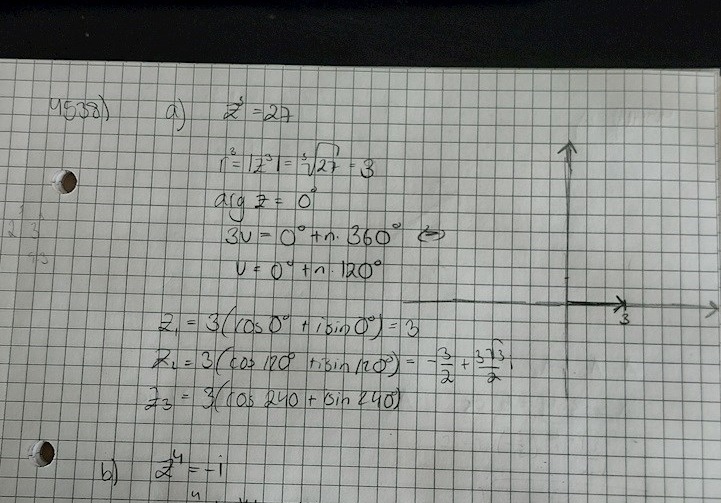 4538) a) z³ = 27
r³ = |z³| = ³√27 = 3
arg z = 0°
3v = 0° + n · 360° ⇔
v = 0° + n · 120°
3
z₁ = 3(cos 0° + i sin 0°) = 3
z₂ = 3(cos 120° + i sin 120°) = -3/2 + 3√3/2 i
z₃ = 3(cos 240 + i sin 240)
b) z⁴ = -i